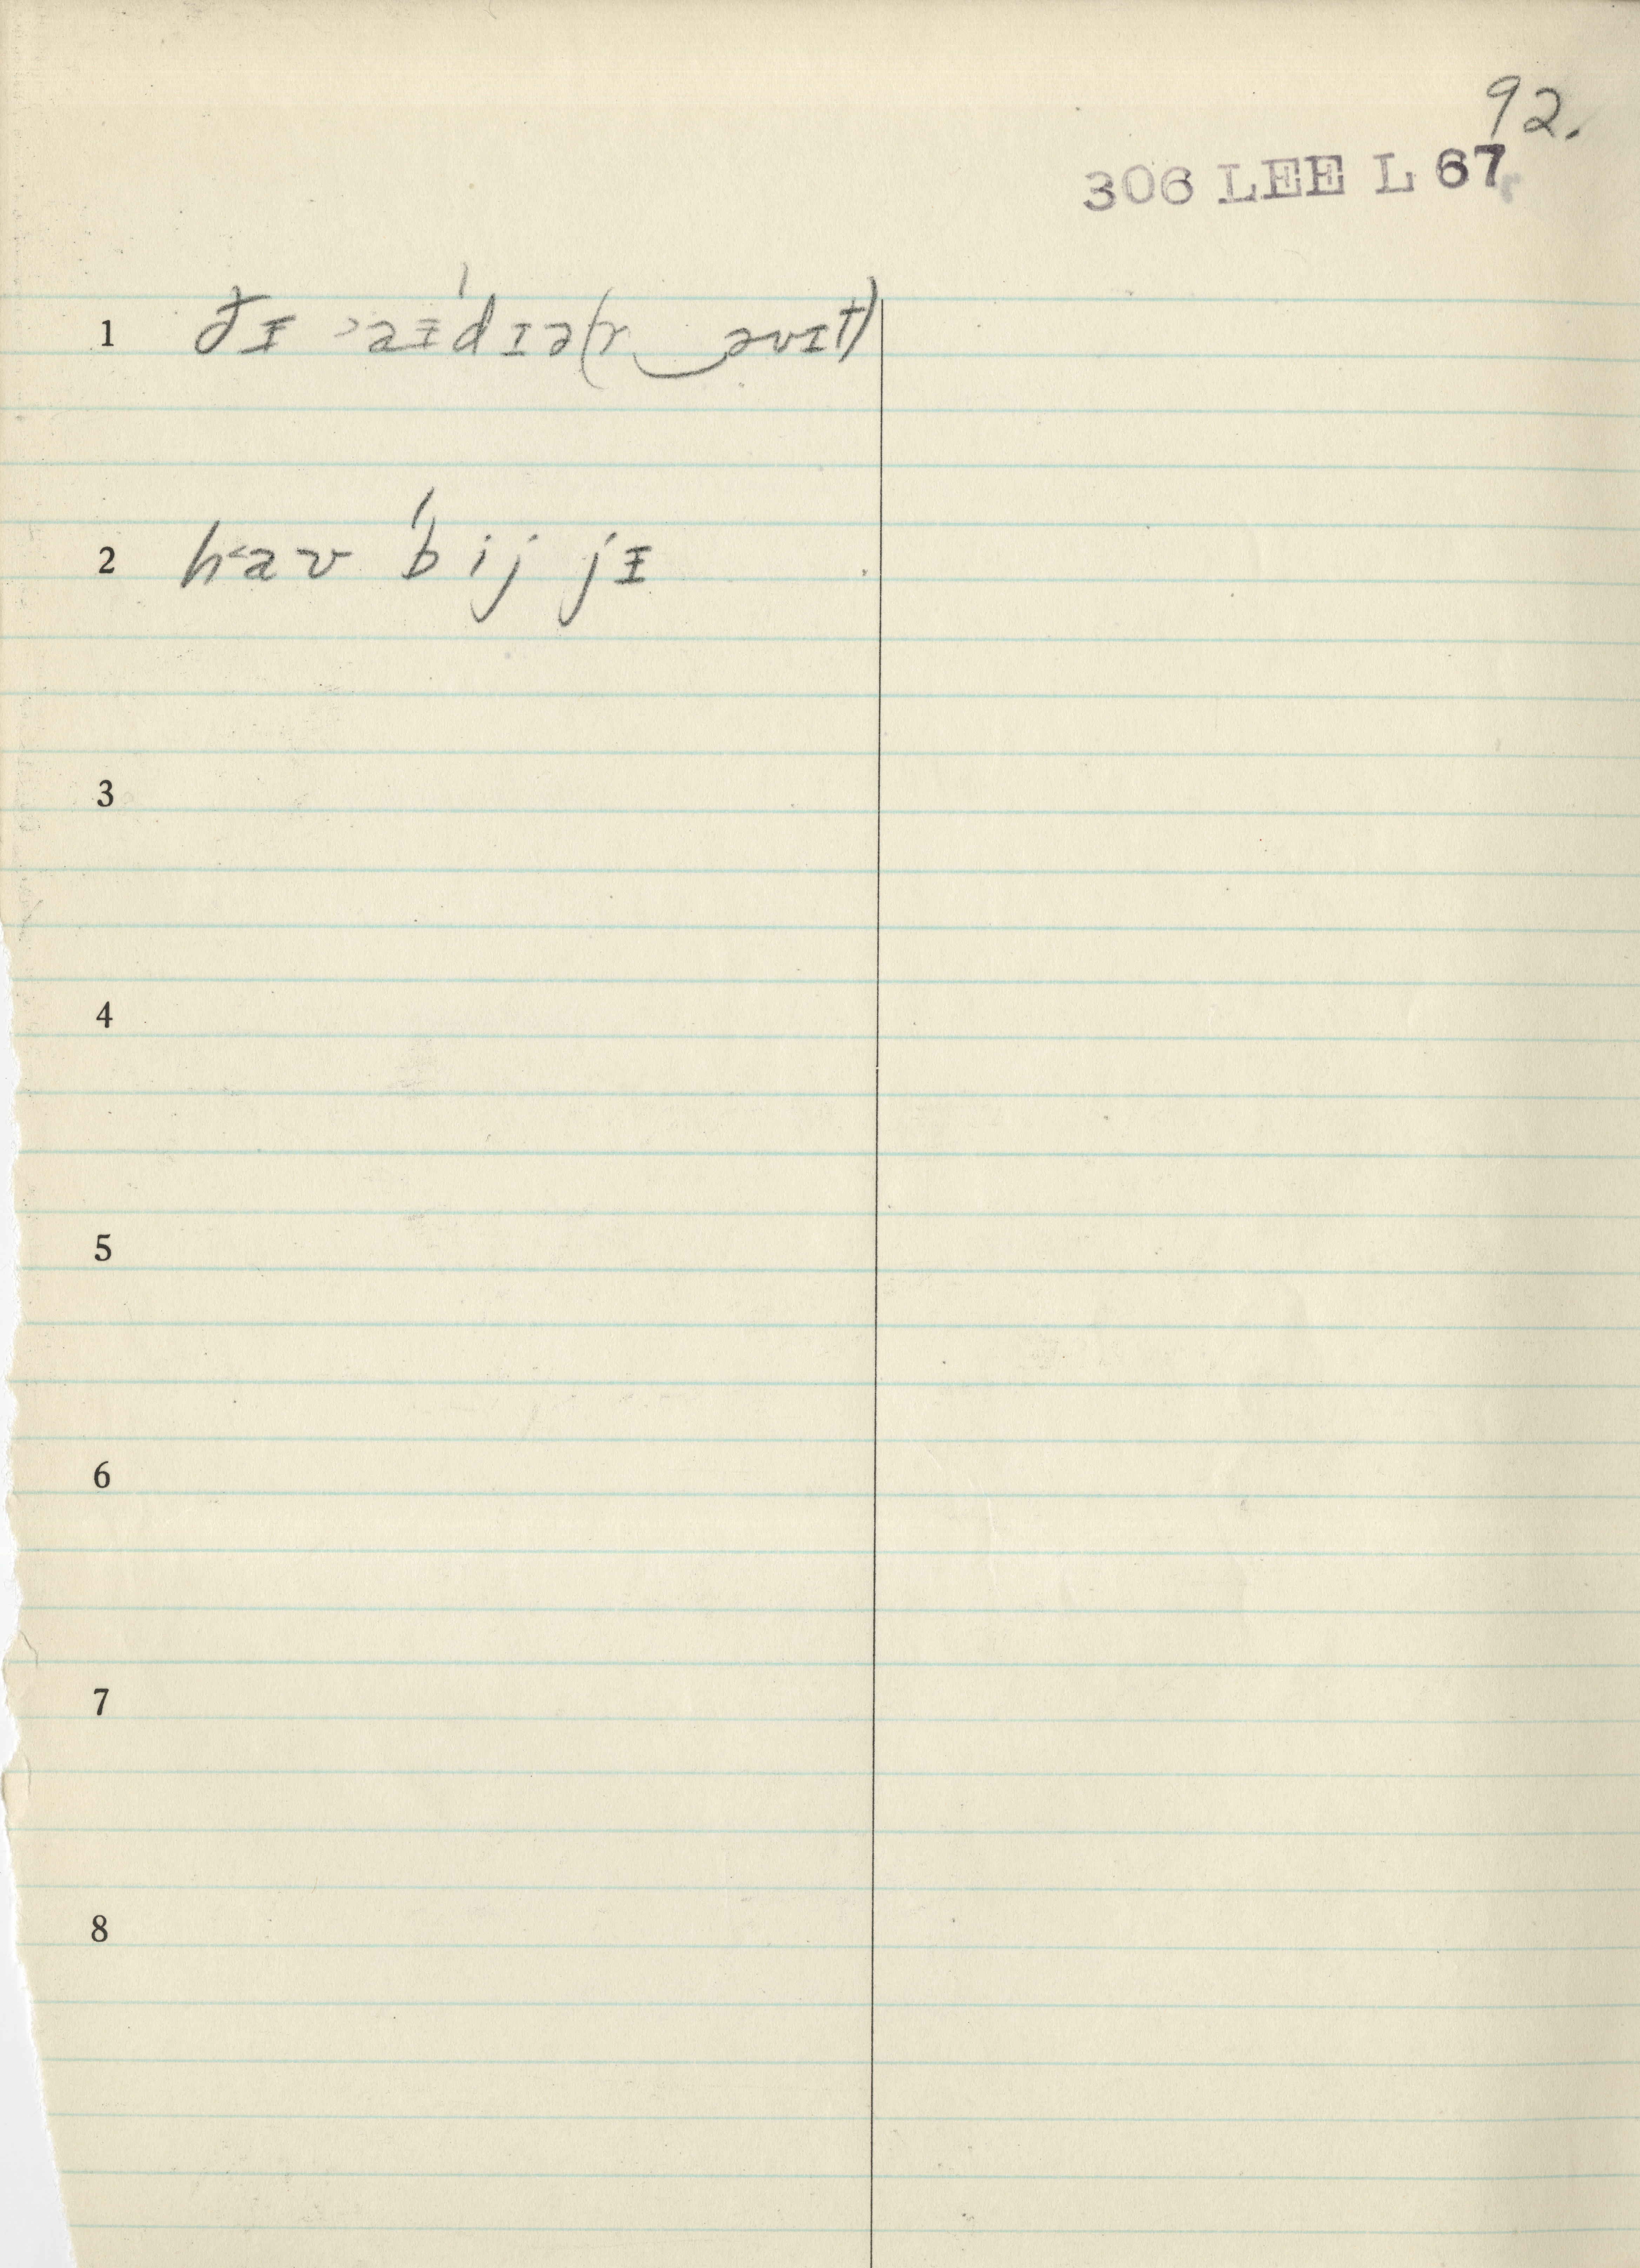 92.
306 LEE L 67
1 ðᵻ ˃aᵻˈdɪə(r‿əvɪt)
2 h˂aʊ ˈbij jᵻ
3
4
5
6
7
8